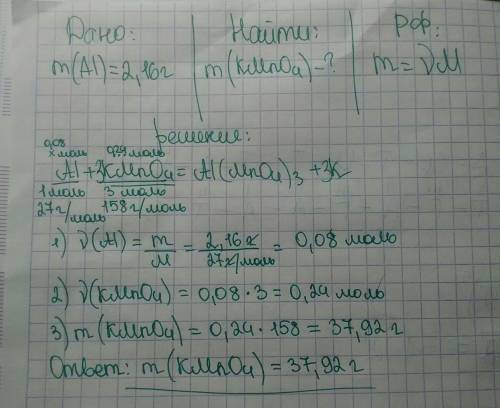 Дано: Найти: РФ:
m(Al)=2,16г m(KMnO4)-? m=νM
решение:
0,08 0,24 моль
x моль
Al+3KMnO4=Al(MnO4)3+3K
1 моль 3 моль
27г/моль 158г/моль
1) ν(Al)=m/M=2,16г/27г/моль=0,08 моль
2) ν(KMnO4)=0,08·3=0,24 моль
3) m(KMnO4)=0,24·158=37,92г
Ответ: m(KMnO4)=37,92г